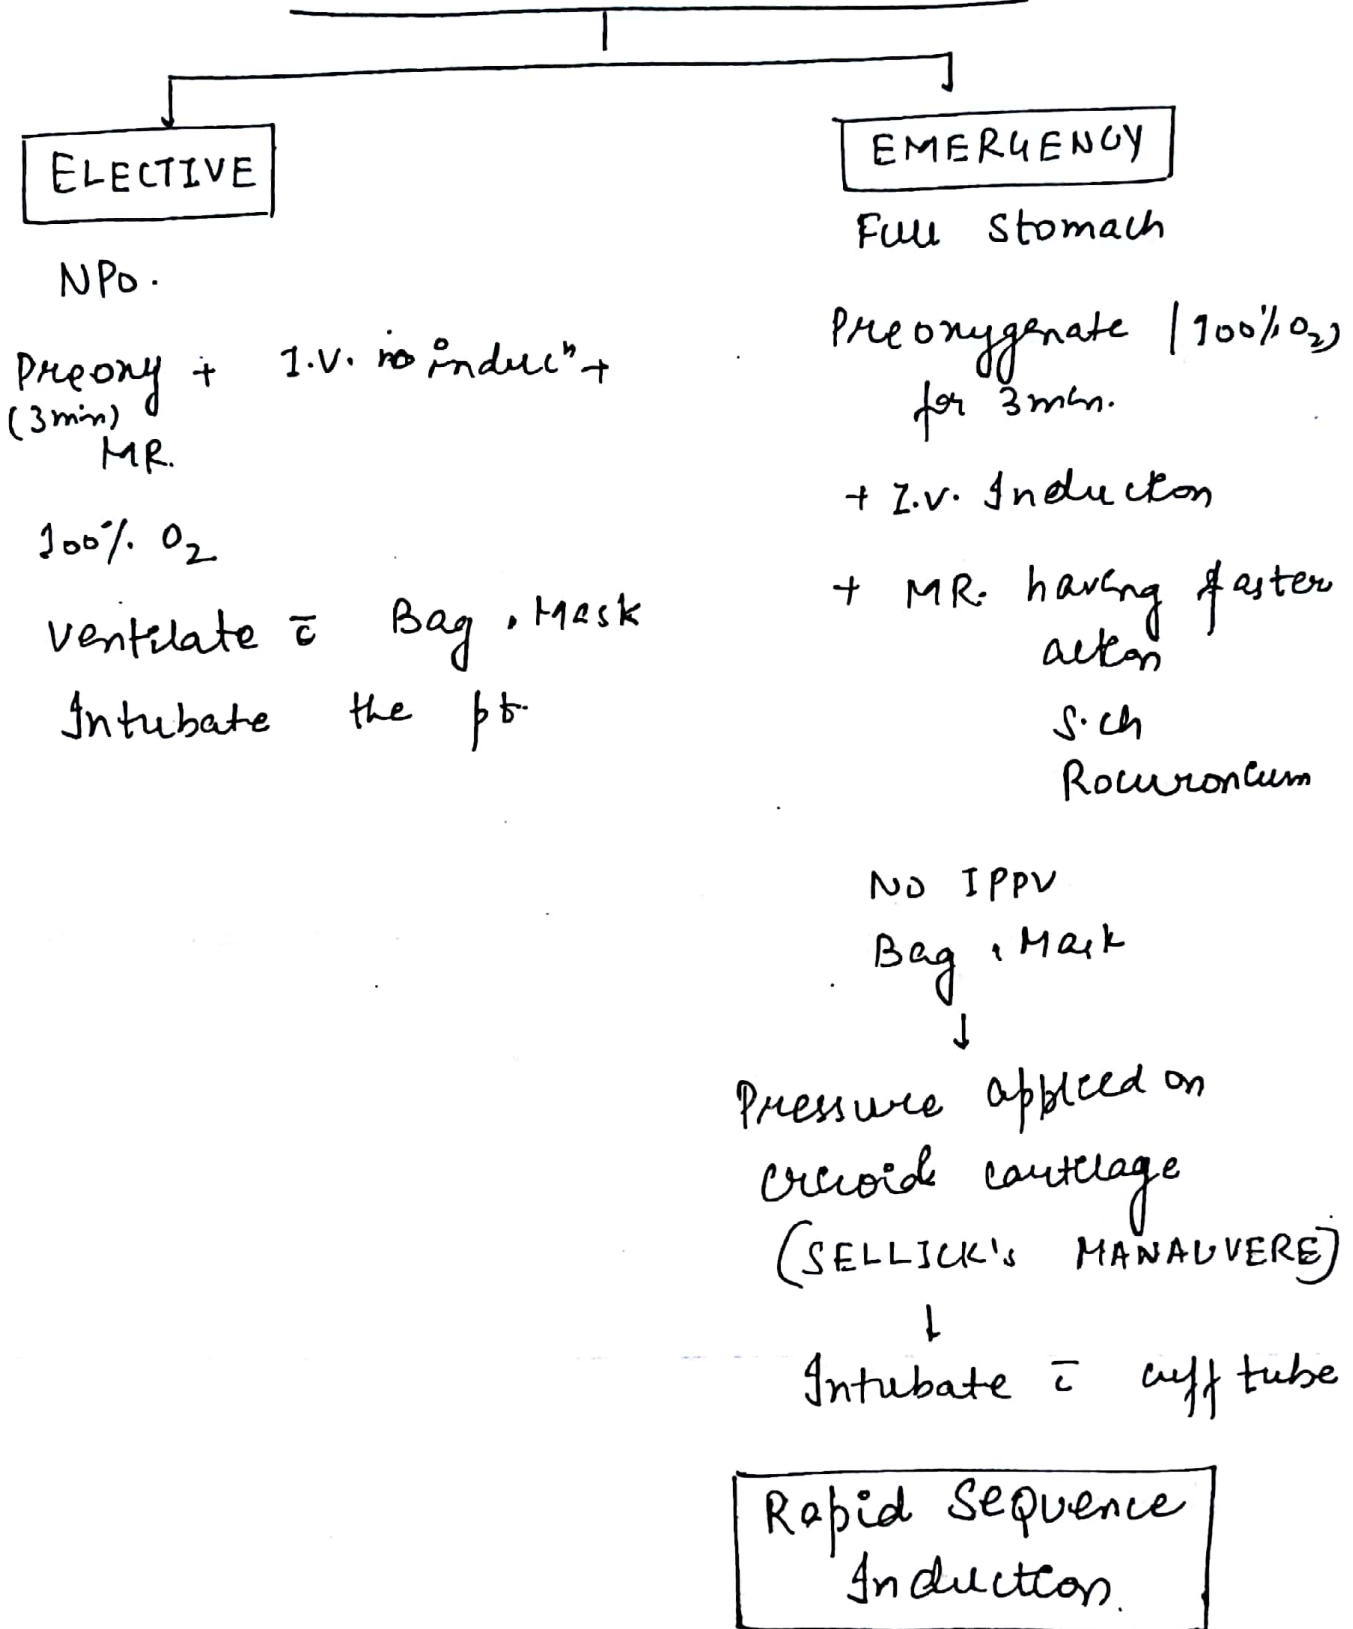 ELECTIVE
NPO.
Preoxy + I.V. inducⁿ +
(3min)
MR.
100% O2
ventilate c̄ Bag, Mask
Intubate the pt.
EMERGENCY
Full Stomach
Preoxygenate (100% O2)
for 3min.
+ I.V. Induction
+ MR. having faster
action
S.ch
Rocuronium
NO IPPV
Bag, Mask
↓
Pressure applied on
cricoid cartilage
(SELLICK's MANAUVERE)
↓
Intubate c̄ cuff tube
Rapid Sequence
Induction.